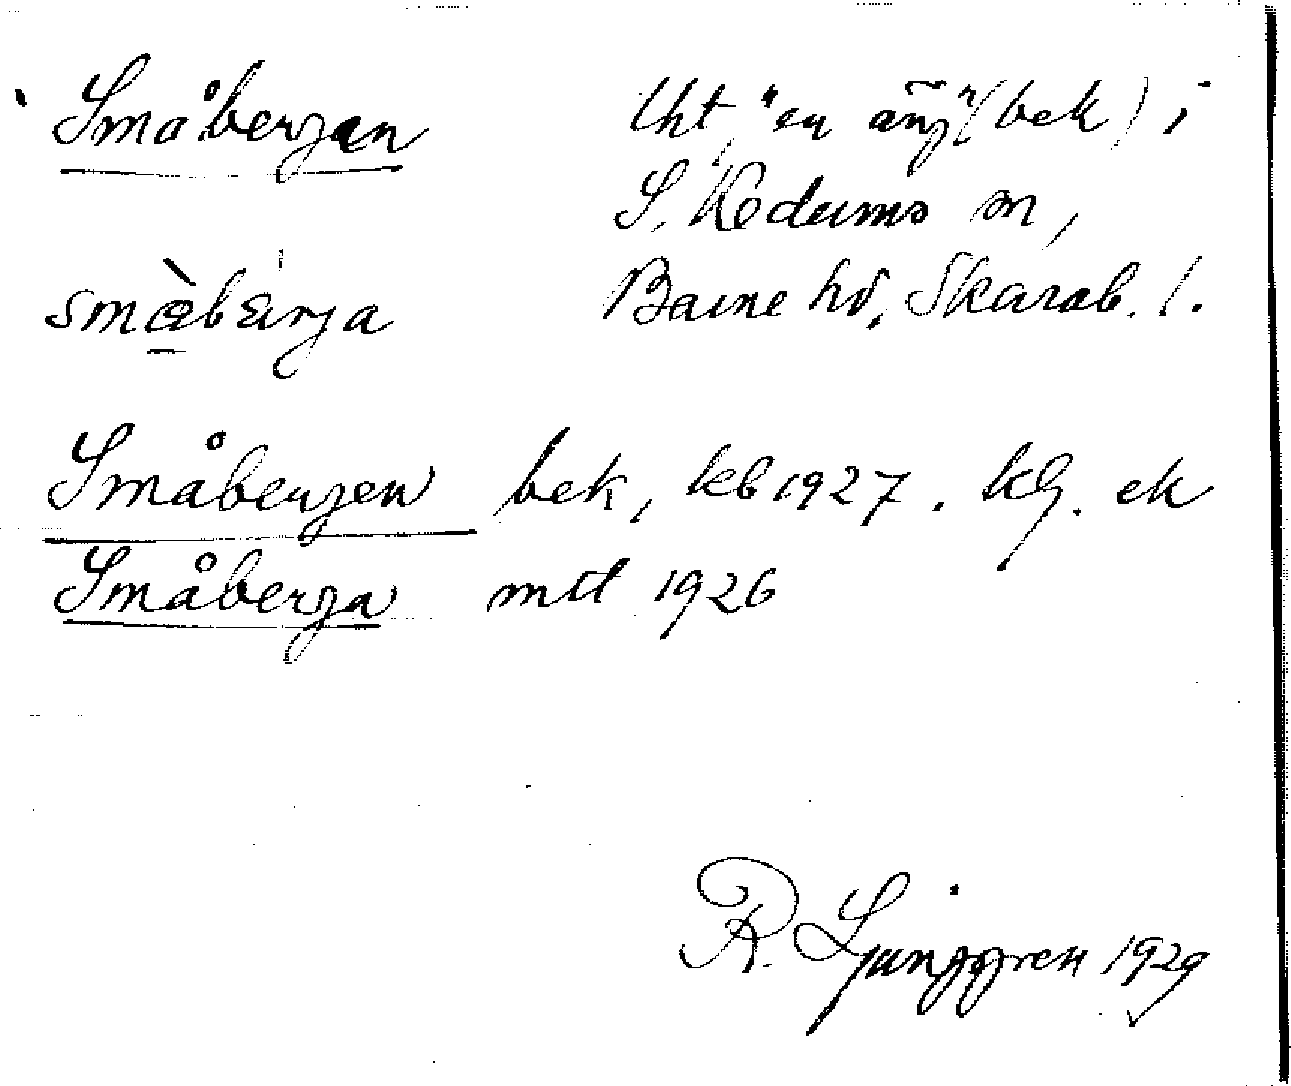 Småbergen
Uht "en äng" (bek) i
S. Kedums sn,
smàbærja
Barne hd, Skarab. l.
Småbergen bek, kb 1927. kG. ek
Småberga mtl 1926
R. Ljunggren 1929